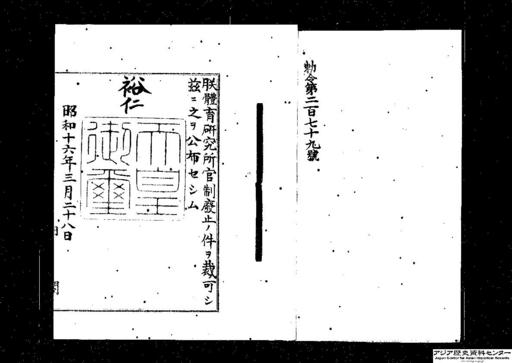 勅令第二百七十九號
朕體育研究所官制廢止ノ件ヲ裁可シ
茲ニ之ヲ公布セシム
裕仁
天皇
御璽
昭和十六年三月二十八日
アジア歴史資料センター
Japan Center for Asian Historical Records